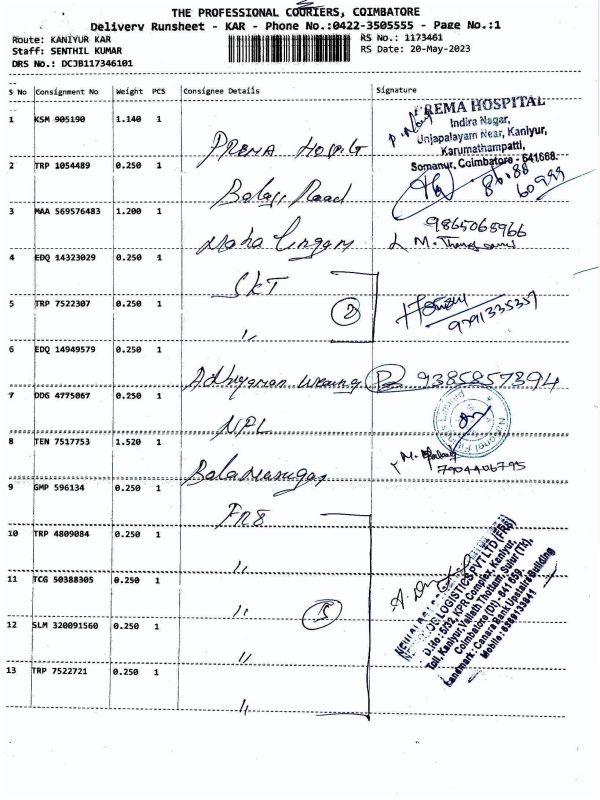 THE PROFESSIONAL COURIERS, COIMBATORE
Delivery Runsheet - KAR - Phone No.:0422-3505555 - Page No.:1
Route: KANIYUR KAR
RS No.: 1173461
Staff: SENTHIL KUMAR
RS Date: 20-May-2023
DRS No.: DCJB117346101
S No Consignment No Weight PCS Consignee Details Signature
1 KSM 905190 1.140 1
PREMA HOSPITAL
Indira Nagar,
Unjapalayam Near, Kaniyur,
Karumathampatti,
Somanur, Coimbatore - 641668.
2 TRP 1054489 0.250 1 Balaji Road
3 MAA 569576483 1.200 1 Maha lingam
9865068966
4 EDQ 14323029 0.250 1 SKT
5 TRP 7522307 0.250 1 "
2
9791335357
6 EDQ 14949579 0.250 1
9385857394
7 DDG 4775067 0.250 1 NPL
8 TEN 7517753 1.520 1
7904406795
9 GMP 596134 0.250 1 FR8
10 TRP 4809084 0.250 1 "
11 TCG 50388305 0.250 1 "
5
12 SLM 320091560 0.250 1 "
13 TRP 7522721 0.250 1 "
LOGISTICS PVT LTD (FR8)
D.No: 5/32, KPR Complex, Kaniyur,
Toll, Kaniyur, Vellath Thottam, Sulur (Tk),
Coimbatore (Dt) - 641 659.
Landmark : Canara Bank Upstairs Building